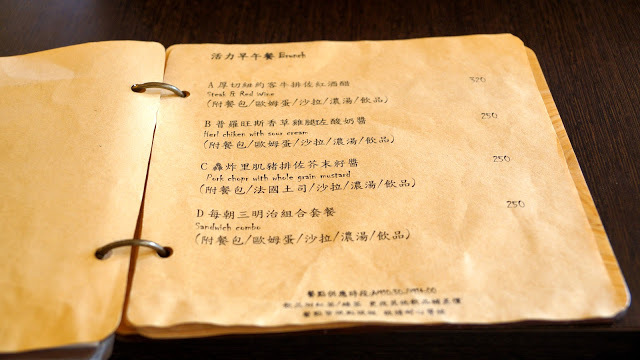 活力早午餐 Brunch
A 厚切紐約客牛排佐紅酒醋 320
Steak & Red Wine
(附餐包/歐姆蛋/沙拉/濃湯/飲品)
B 普羅旺斯香草雞腿佐酸奶醬 250
Herl chiken with sour cream
(附餐包/歐姆蛋/沙拉/濃湯/飲品)
C 轟炸里肌豬排佐芥末籽醬 250
Pork chopr with whole grain mustard
(附餐包/法國土司/沙拉/濃湯/飲品)
D 每朝三明治組合套餐 250
Sandwich combo
(附餐包/歐姆蛋/沙拉/濃湯/飲品)
餐點供應時段
飲品附紅茶/綠茶 更改其他飲品補差價